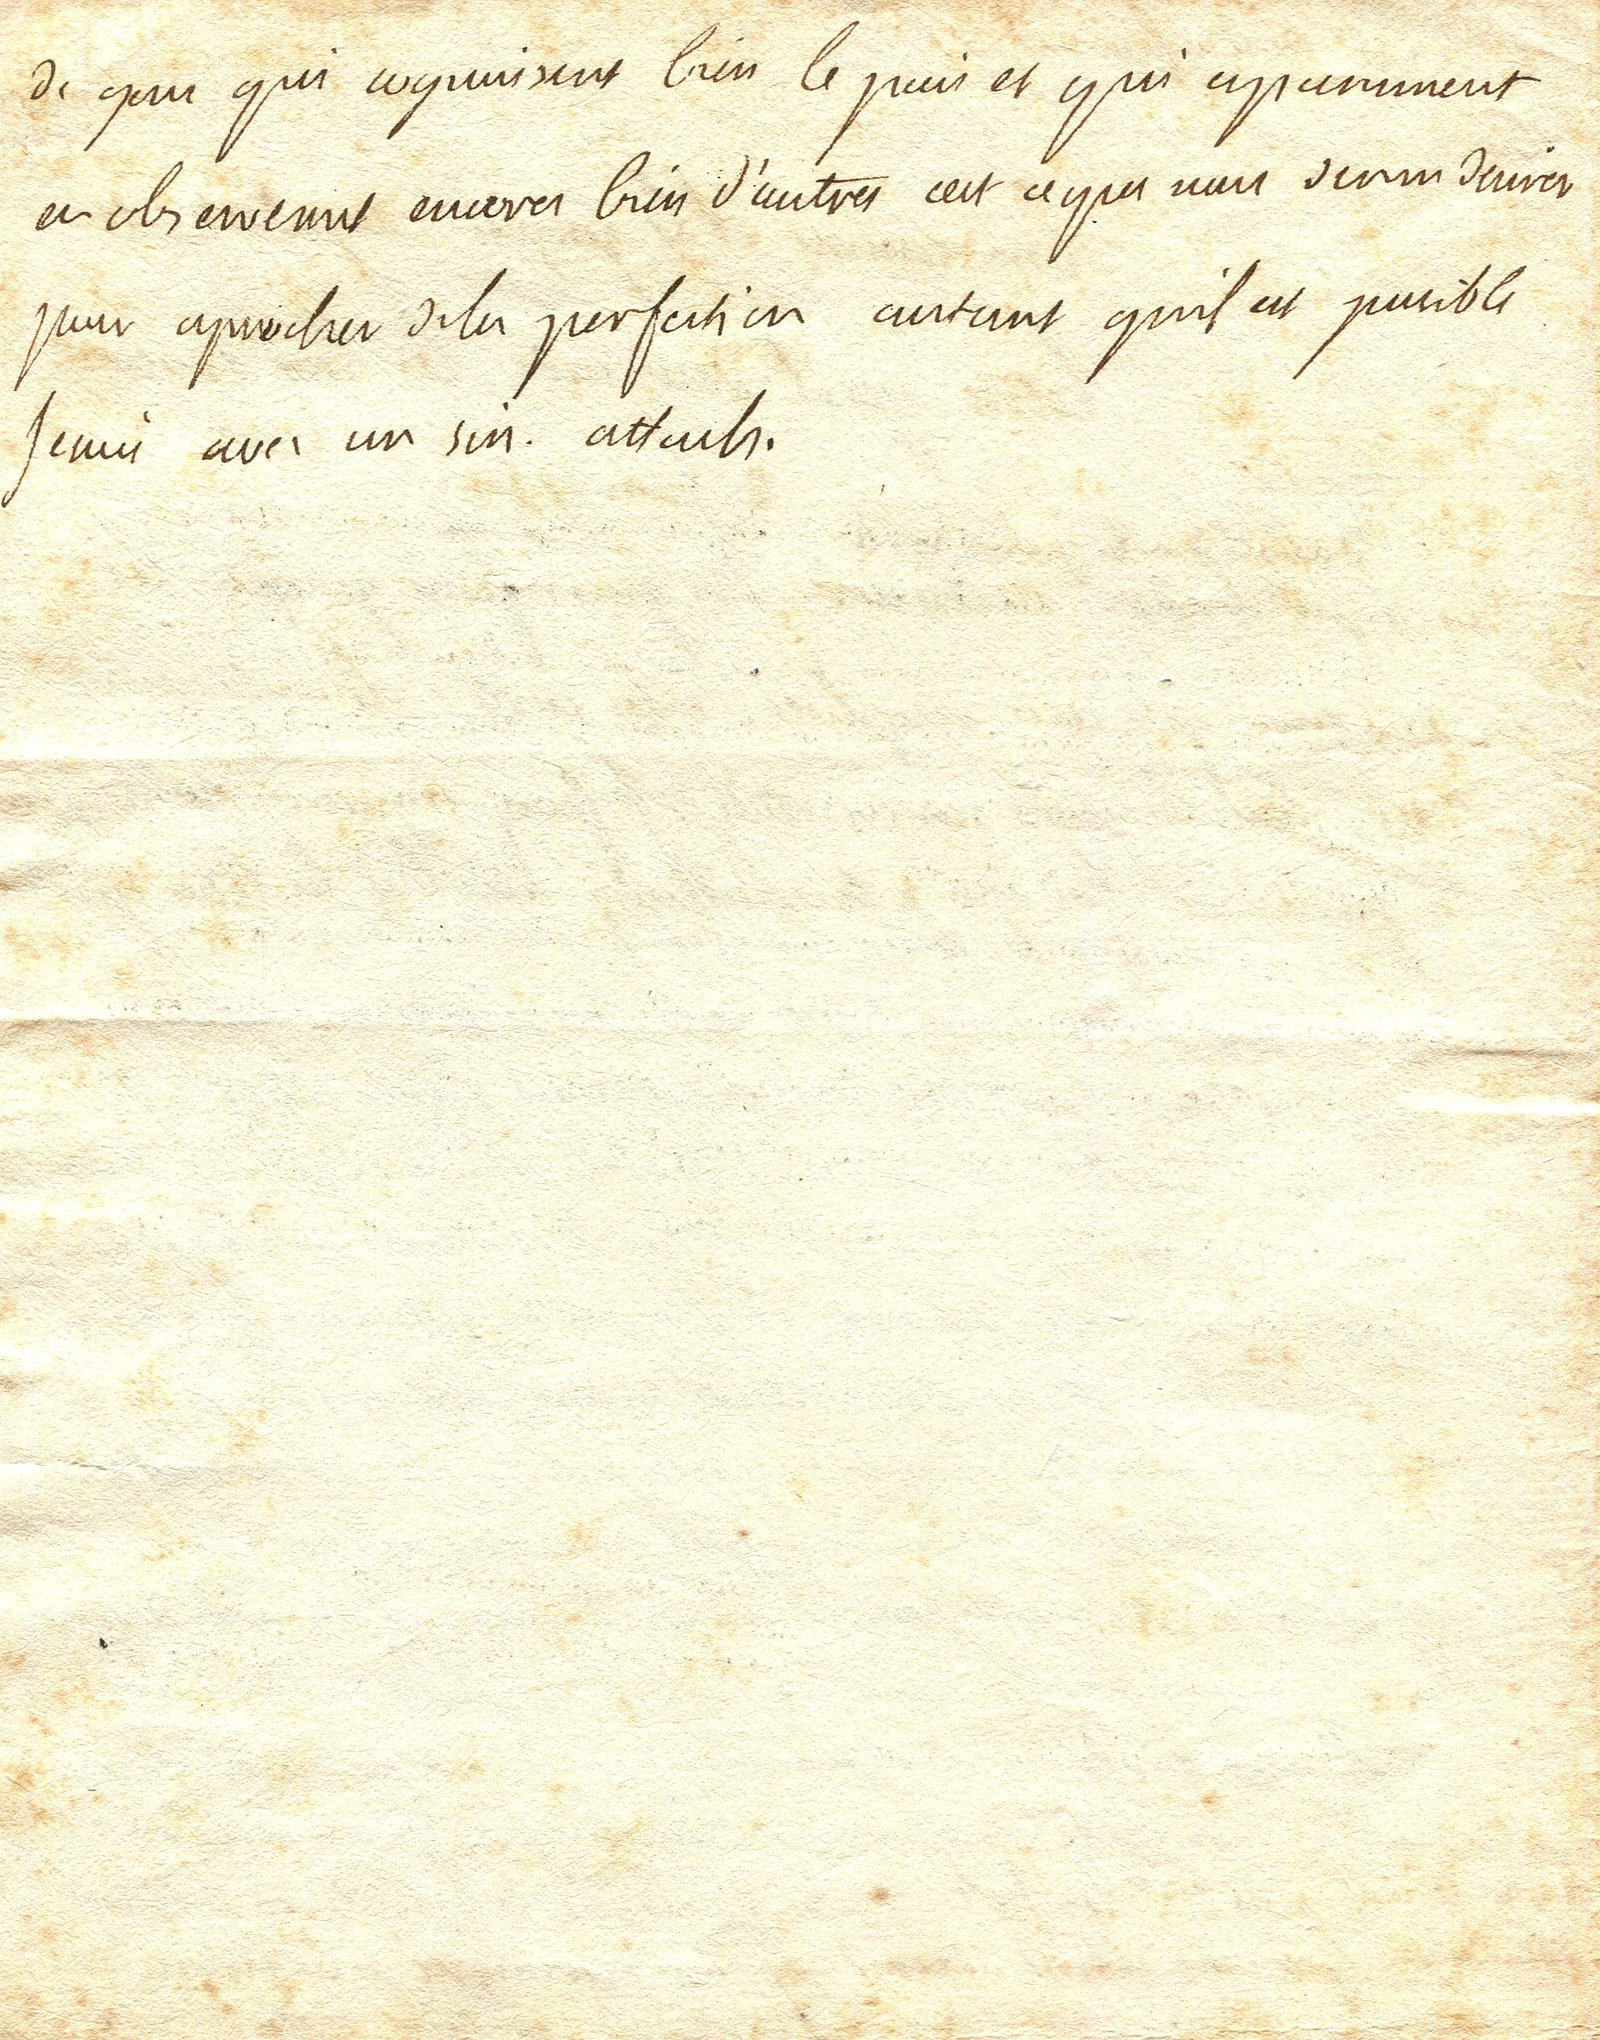 de gens qui cognoisent bien le pais et qui aparenment
en observeront encores bien d'autres cest ce que nous devons desirer
pour aprocher de la perfection autant quil est posible
Je suis avec un sin. attach.